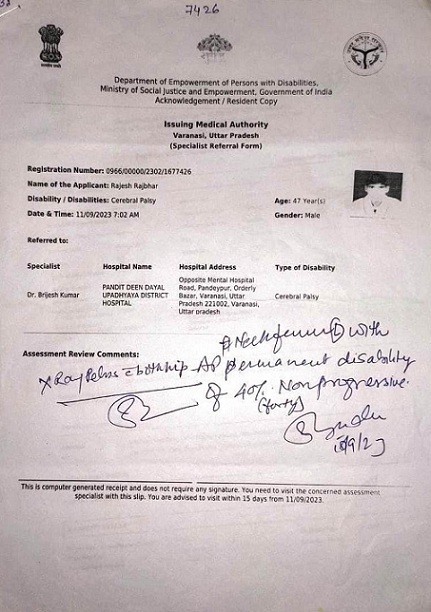 7426
Department of Empowerment of Persons with Disabilities,
Ministry of Social Justice and Empowerment, Government of India
Acknowledgement / Resident Copy
Issuing Medical Authority
Varanasi, Uttar Pradesh
(Specialist Referral Form)
Registration Number: 0966/00000/2302/1677426
Name of the Applicant: Rajesh Rajbhar
Disability / Disabilities: Cerebral Palsy
Age: 47 Year(s)
Date & Time: 11/09/2023 7:02 AM
Gender: Male
Referred to:
Specialist Hospital Name Hospital Address Type of Disability
Dr. Brijesh Kumar
PANDIT DEEN DAYAL
UPADHYAYA DISTRICT
HOSPITAL
Opposite Mental Hospital
Road, Pandeypur, Orderly
Bazar, Varanasi, Uttar
Pradesh 221002, Varanasi,
Uttar pradesh
Cerebral Palsy
# Neck femur (L) with
Assessment Review Comments:
X Ray Pelvis both hip AP
permanent disability
of 40% Non progressive.
(forty)
This is computer generated receipt and does not require any signature. You need to visit the concerned assessment
specialist with this slip. You are advised to visit within 15 days from 11/09/2023.